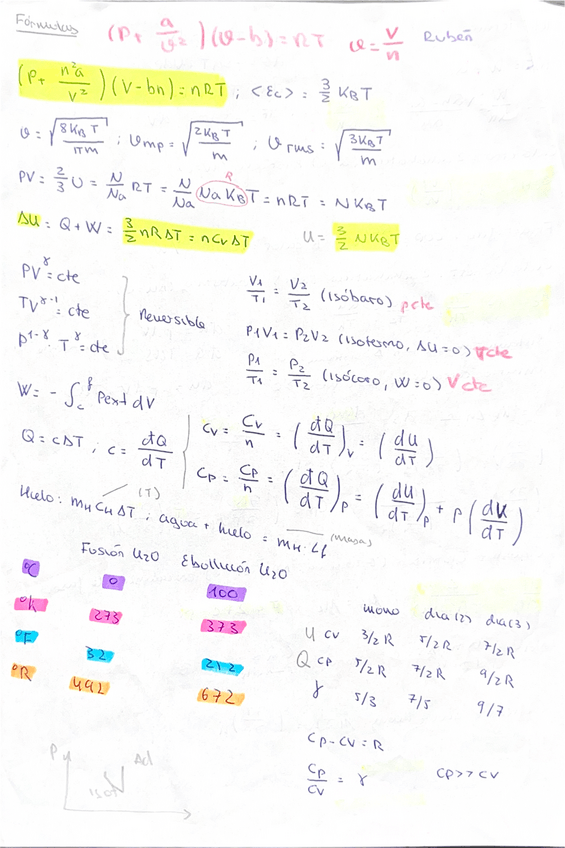 Fórmulas (P+ a/v²)(v-b)=RT v=V/n Rubén
(P+ n²a/V²)(V-bn)=nRT ; <Ec> = 3/2 KBT
v = √(8KBT/πm) ; vmp = √(2KBT/m) ; vrms = √(3KBT/m)
PV = 2/3 U = N/Na RT = N/Na NaKB T = nRT = NKBT
R
ΔU = Q + W = 3/2 nRΔT = nCvΔT U = 3/2 NKBT
PV^γ = cte
TV^γ-1 = cte
P^1-γ · T^γ = cte
Reversible
V1/T1 = V2/T2 (isóbaro) pcte
P1V1 = P2V2 (isotermo, ΔU=0) Tcte
P1/T1 = P2/T2 (isócoro, W=0) Vcte
W = - ∫ Pext dV
Q = cΔT ; c = đQ/dT
Cv = Cv/n = (đQ/dT)v = (dU/dT)
Cp = Cp/n = (đQ/dT)p = (dU/dT)p + P(dV/dT)
(T)
Hielo: mH CH ΔT ; agua + hielo = mH · Lf (masas)
Fusión H2O Ebullición H2O
ºC 0 100
ºK 273 373
ºF 32 212
ºR 492 672
mono dia(2) dia(3)
U Cv 3/2 R 5/2 R 7/2 R
Q Cp 5/2 R 7/2 R 9/2 R
γ 5/3 7/5 9/7
Cp-Cv=R
Cp/Cv = γ Cp>>Cv
P Ad
isot